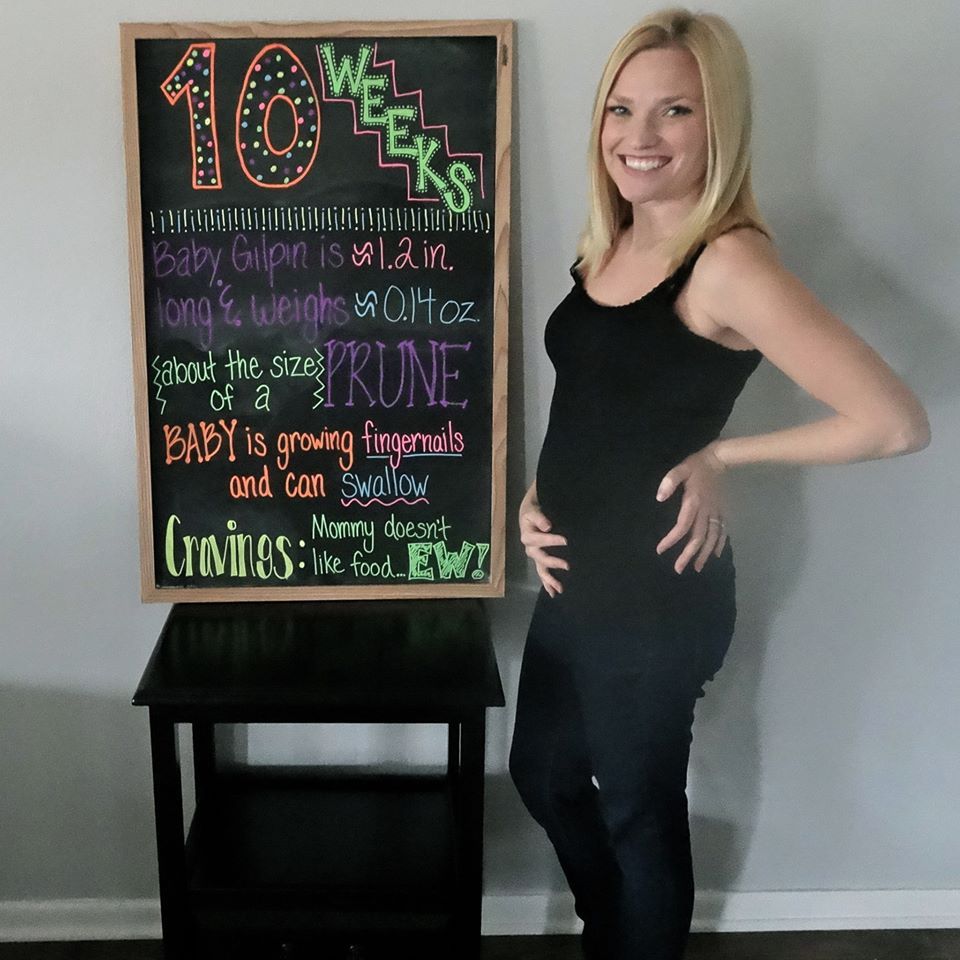 10 WEEKS
Baby Gilpin is ≈1.2 in.
long & weighs ≈0.14 oz.
about the size
of a PRUNE
BABY is growing fingernails
and can swallow
Cravings: Mommy doesn't
like food... EW!